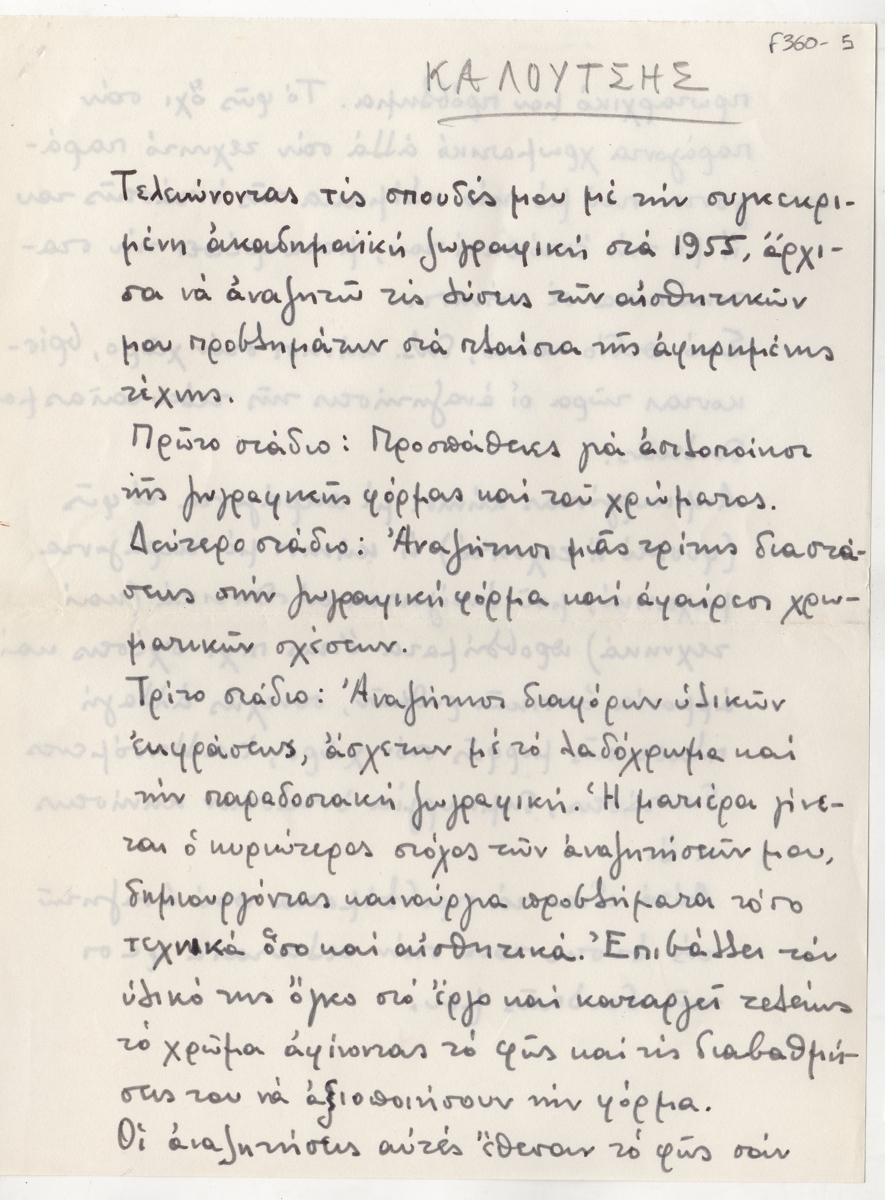 F360-5
ΚΑΛΟΥΤΣΗΣ
Τελειώνοντας τίς σπουδές μου μέ τήν συγκεκρι-
μένη ἀκαδημαϊκή ζωγραφική στά 1955, ἄρχι-
σα νά ἀναζητῶ τίς λύσεις τῶν αἰσθητικῶν
μου προβλημάτων στά πλαίσια τῆς ἀφηρημένης
τέχνης.
Πρῶτο στάδιο: Προσπάθειες γιά ἁπλοποίησι
τῆς ζωγραφικῆς φόρμας καί τοῦ χρώματος.
Δεύτερο στάδιο: Ἀναζήτησι μιᾶς τρίτης διαστά-
σεως στήν ζωγραφική φόρμα καί ἀφαίρεσι χρω-
ματικῶν σχέσεων.
Τρίτο στάδιο: Ἀναζήτησι διαφόρων ὑλικῶν
ἐκφράσεως, ἄσχετων μέ τό λαδόχρωμα καί
τήν παραδοσιακή ζωγραφική. Ἡ ματιέρα γίνε-
ται ὁ κυριώτερος στόχος τῶν ἀναζητήσεών μου,
δημιουργόντας καινούργια προβλήματα τόσο
τεχνικά ὅσο καί αἰσθητικά. Ἐπιβάλλει τόν
ὑλικό της ὄγκο στό ἔργο καί καταργεῖ τελείως
τό χρῶμα ἀφίνοντας τό φῶς καί τίς διαβαθμί-
σεις του νά ἀξιοποιήσουν τήν φόρμα.
Οἱ ἀναζητήσεις αὐτές ἔθεσαν τό φῶς σάν